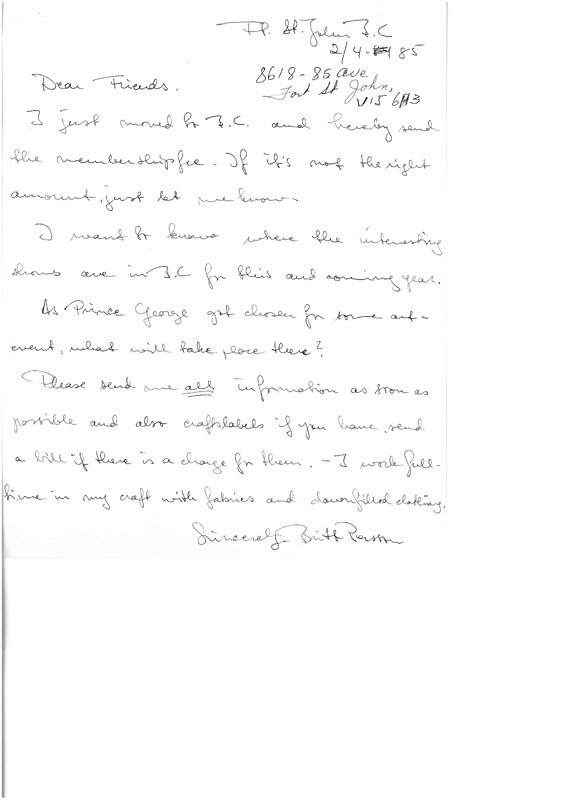 Ft. St. John B.C
2/4 - 85
8618 - 85 ave
Fort St John,
V1J 6H3
Dear Friends.
I just moved to B.C. and hereby send
the membershipfee. If it's not the right
amount, just let me know
I want to know where the interesting
shows are in B.C for this and coming year.
As Prince George got chosen for some art-
event, what will take place there?
Please send me all information as soon as
possible and also craftslabels if you have, send
a bill if there is a charge for them. - I work full-
time in my craft with fabrics and downfilled clothing.
Sincerely Britt Persson